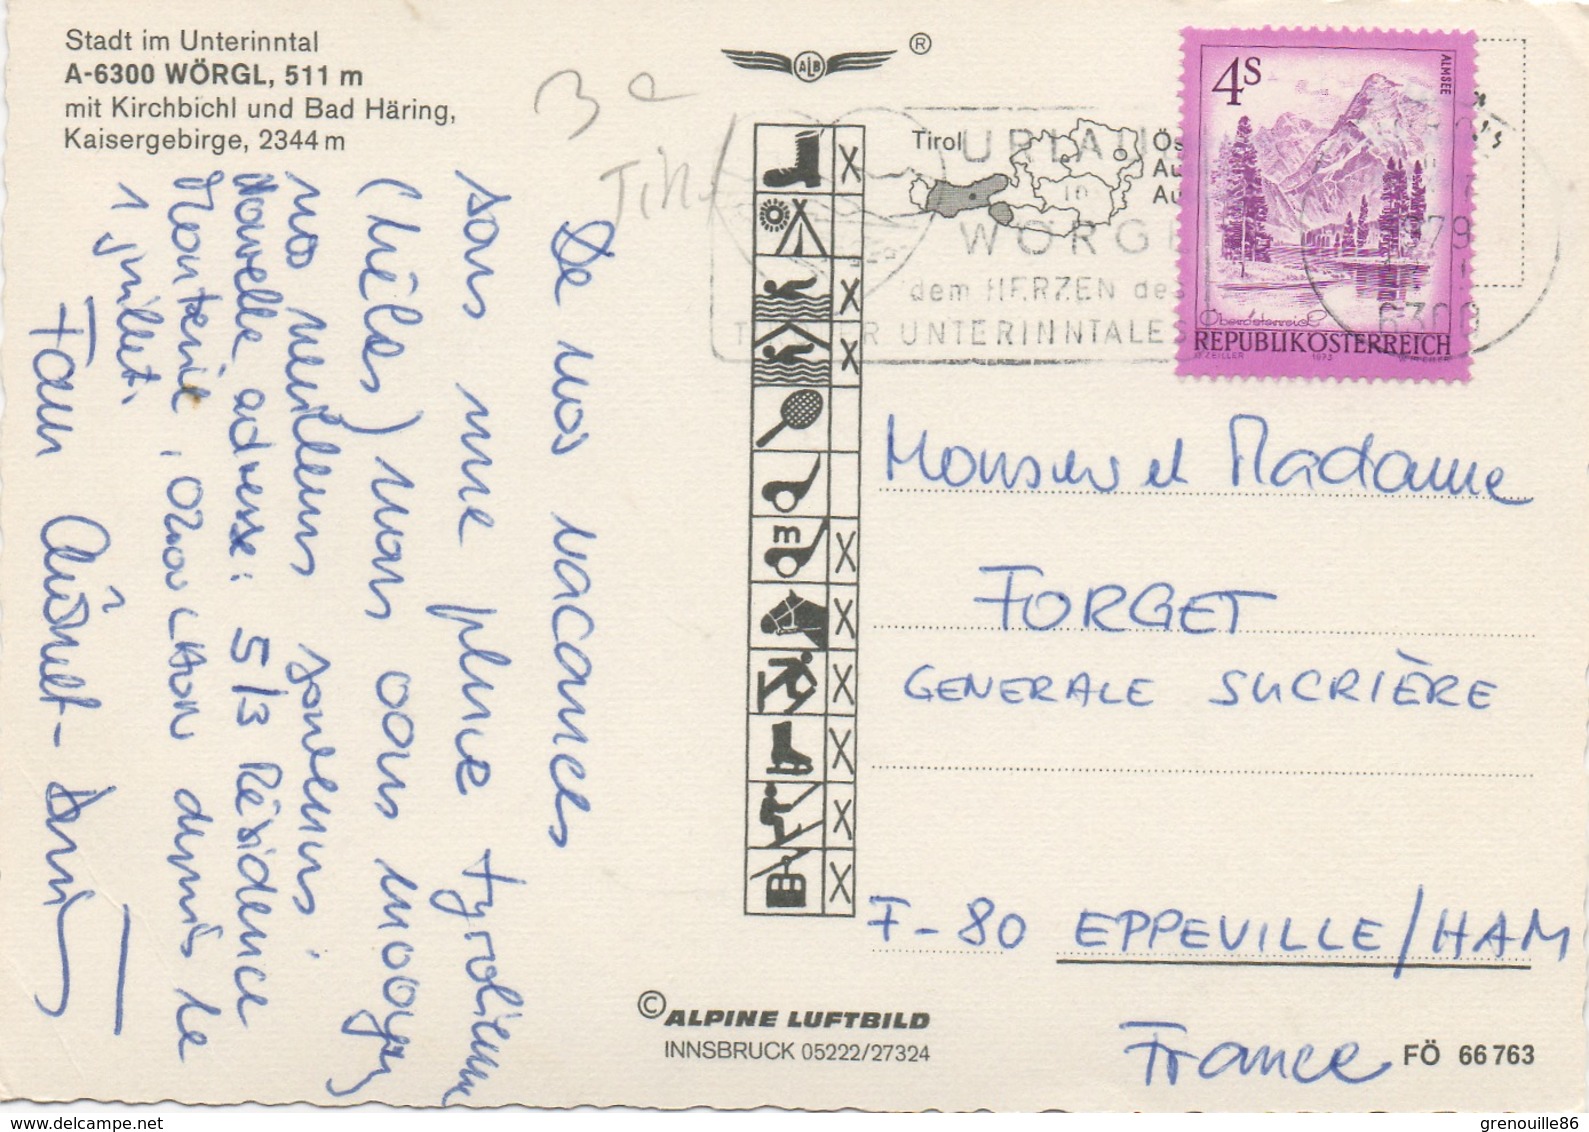 Stadt im Unterinntal
A-6300 WÖRGL, 511 m
mit Kirchbichl und Bad Häring,
Kaisergebirge, 2344 m
ALB ®
3 e
Tirol
Ös
Au
Au
URLAU
in
WÖRGL
dem HERZEN des
UNTERINNTALES
4S
ALMSEE
Oberösterreich
REPUBLIK ÖSTERREICH
ZEILLER 1973
979
6300
De nos vacances
sous une pluie tyrolienne
(hélas) nous vous envoyons
nos meilleurs souvenirs.
Nouvelle adresse: 5/3 Résidence
, depuis le
1 juillet.
Fam
m
Monsieur et Madame
FORGET
GENERALE SUCRIÈRE
F-80 EPPEVILLE/HAM
France
© ALPINE LUFTBILD
INNSBRUCK 05222/27324
FÖ 66 763
www.delcampe.net
grenouille86